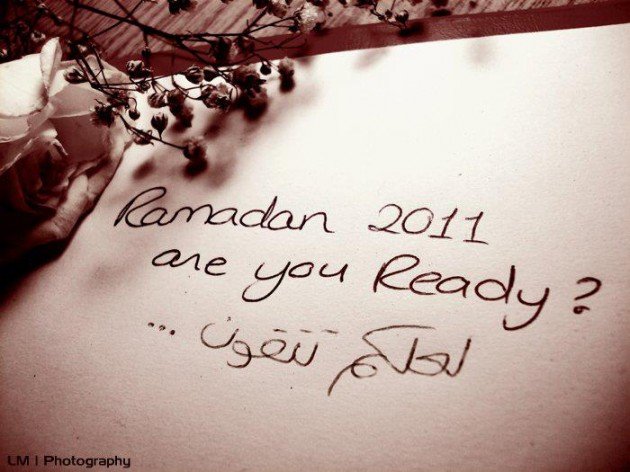 Ramadan 2011
are you Ready?
لعلكم تتقون ...
LM | Photography